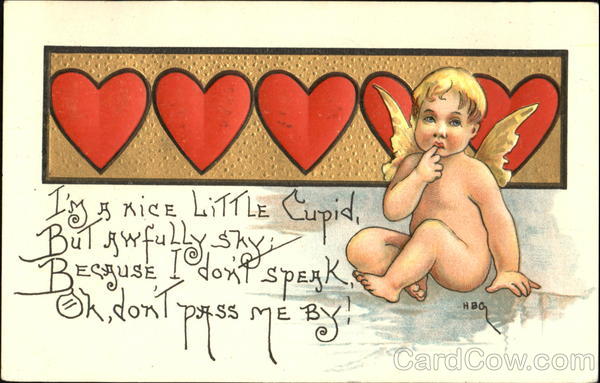 I'm a nice little Cupid,
But awfully shy;
Because I don't speak,
Oh, don't pass me by!
HBG
CardCow.com